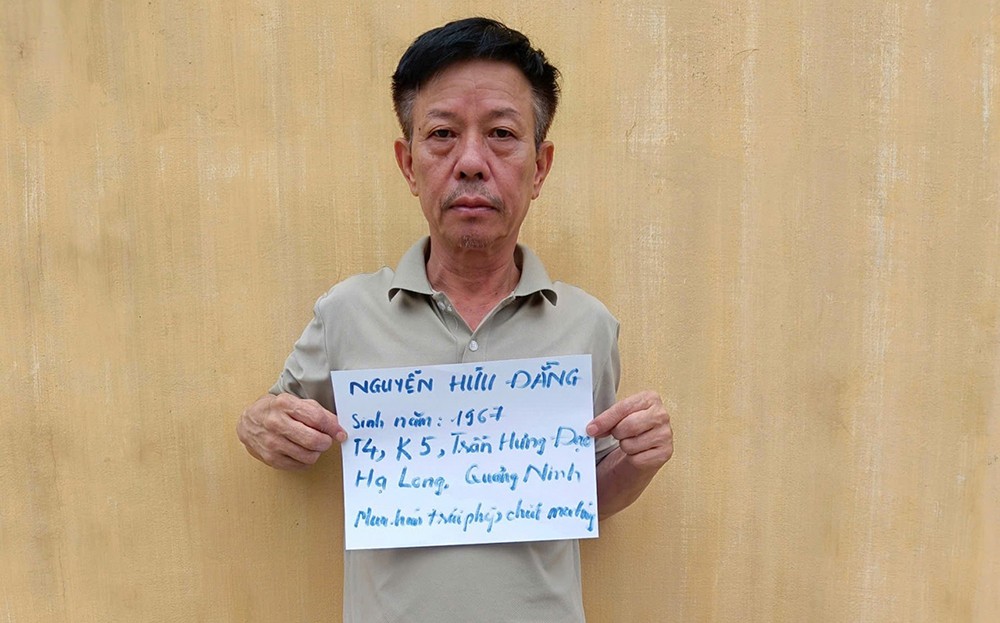 NGUYỄN HỮU ĐẲNG
Sinh năm: 1967
T4, K5, Trần Hưng Đạo
Hạ Long, Quảng Ninh
Mua bán trái phép chất ma túy